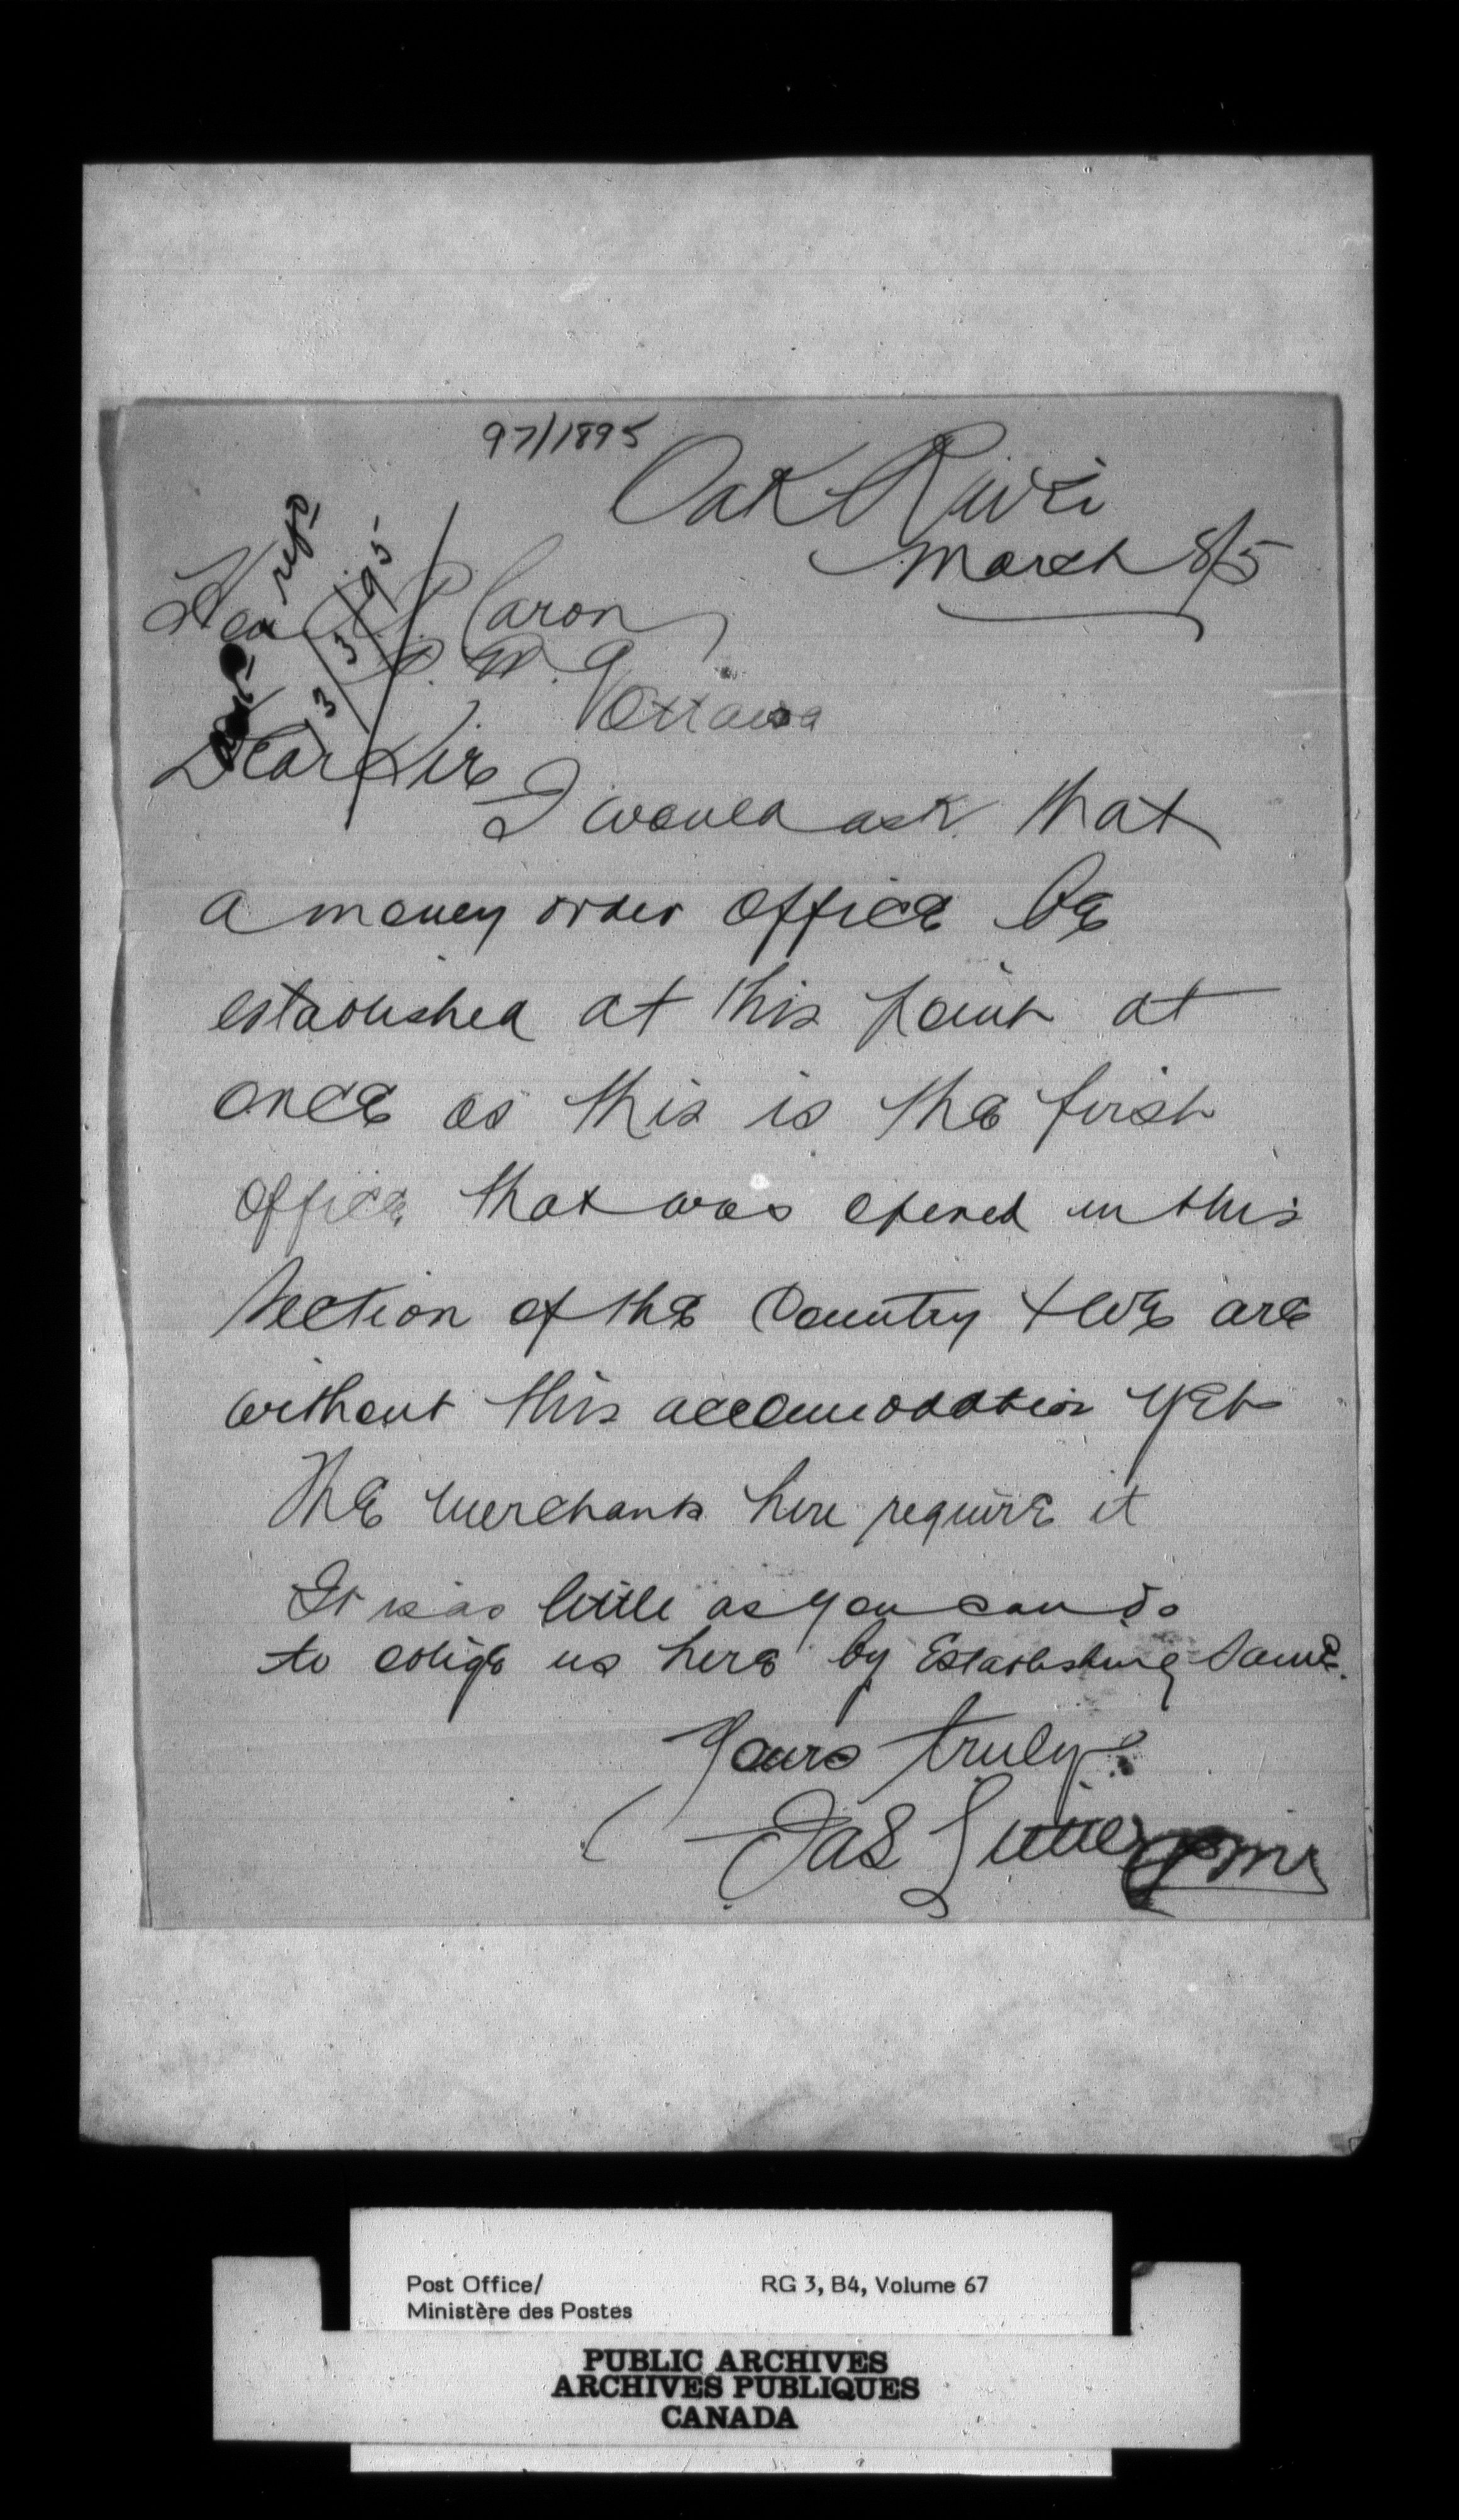 97/1895
Oak River
March 8/5
Hon A. P. Caron
P. M. G
Ottawa
13/3/95
Dear Sir
I would ask that
a money order office be
established at this point at
once as this is the first
office that was opened in this
Section of the Country + we are
without this accomodation yet
The merchants here require it
It is as little as you can do
to oblige us here by Establishing Same.
Yours truly
Jas
PM
Post Office/
Ministère des Postes
RG 3, B4, Volume 67
PUBLIC ARCHIVES
ARCHIVES PUBLIQUES
CANADA